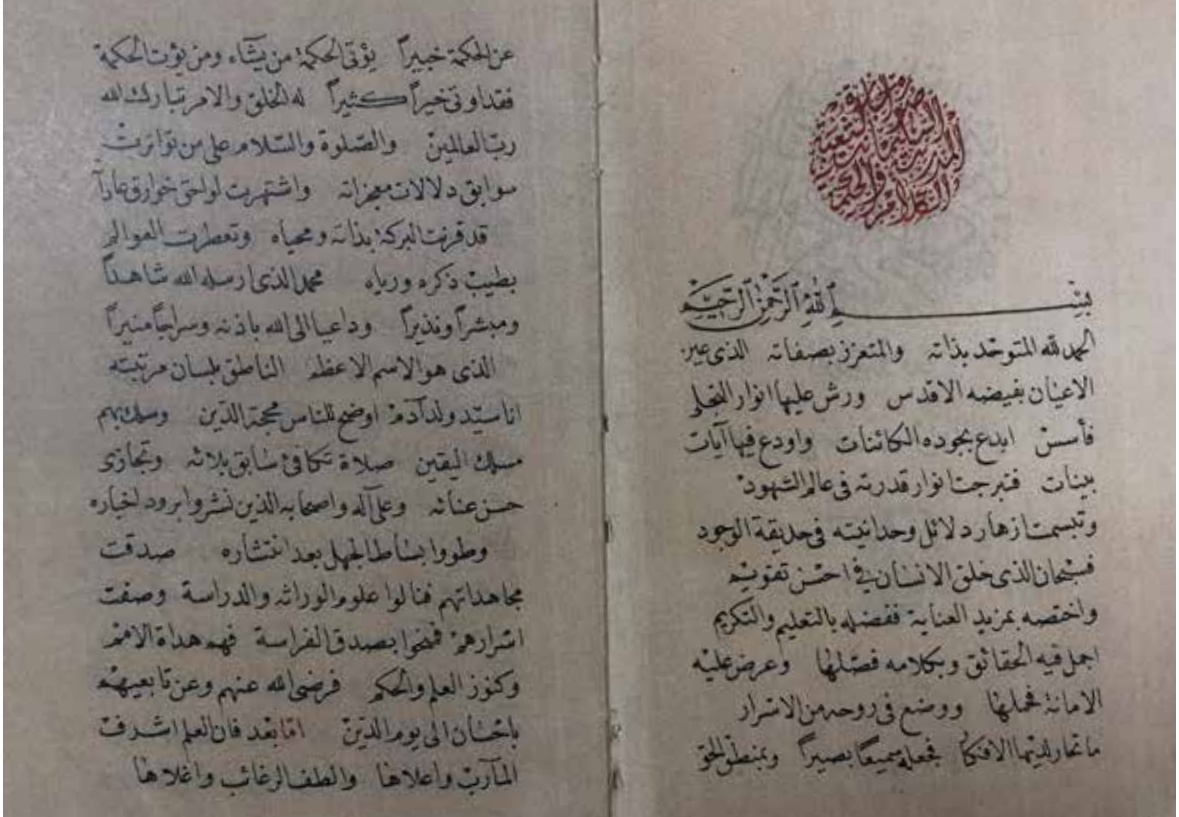 بسم الله الرحمن الرحيم
الحمد لله المتوحد بذاته والمتعزز بصفاته الذى عين
الاعيان بفيضه الاقدس ورش عليها انوار التجلى
ابدع بجوده الكائنات واودع فيها آيات
بينات فتبرجت انوار قدرته فى عالم الشهود
وتبسمت ازهار دلائل وحدانيته فى حديقة الوجود
فسبحان الذى خلق الانسان فى احسن تقويم
واختصه بمزيد العناية ففضله بالتعليم والتكريم
اجمل فيه الحقائق وبكلامه فصلها وعرض عليه
الامانة فحملها ووضع فى روحه من الاسرار
ما تحار لديها الافكار فجعله سميعا بصيراً وبمنطق الحق
عن الحكمة خبيراً يؤتى الحكمة من يشاء ومن يؤت الحكمة
فقد اوتى خيراً كثيراً له الخلق والامر تبارك الله
ربّ العالمين والصلوة والسّلام على من تواترت
سوابق دلالات معجزاته واشتهرت لواحق خوارق عاداته
قد قرنت البركة بذاته ومحياه وتعطرت العوالم
بطيب ذكره ورياه محمد الذى ارسله الله شاهداً
ومبشراً ونذيراً وداعيا الى الله باذنه وسراجاً منيراً
الذى هو الاسم الاعظم الناطق بلسان مرتبته
انا سيّد ولد آدم اوضح للناس محجة الدّين وسلك بهم
مسلك اليقين صلاة تكافئ سابق بلائه وتجازى
حسن عنائه وعلى آله واصحابه الذين نشروا برود اخباره
وطووا بساط الجهل بعد انتشاره صدقت
مجاهداتهم فنالوا علوم الوراثه والدراسة وصفت
اسرارهم فمنحوا بصدق الفراسة فهم هداة الامم
وكنوز العلم والحكم فرضى الله عنهم وعن تابعيهم
باحسان الى يوم الدّين امّا بعد فان العلم اشرف
المآرب واعلاها والطف الرغائب واغلاها